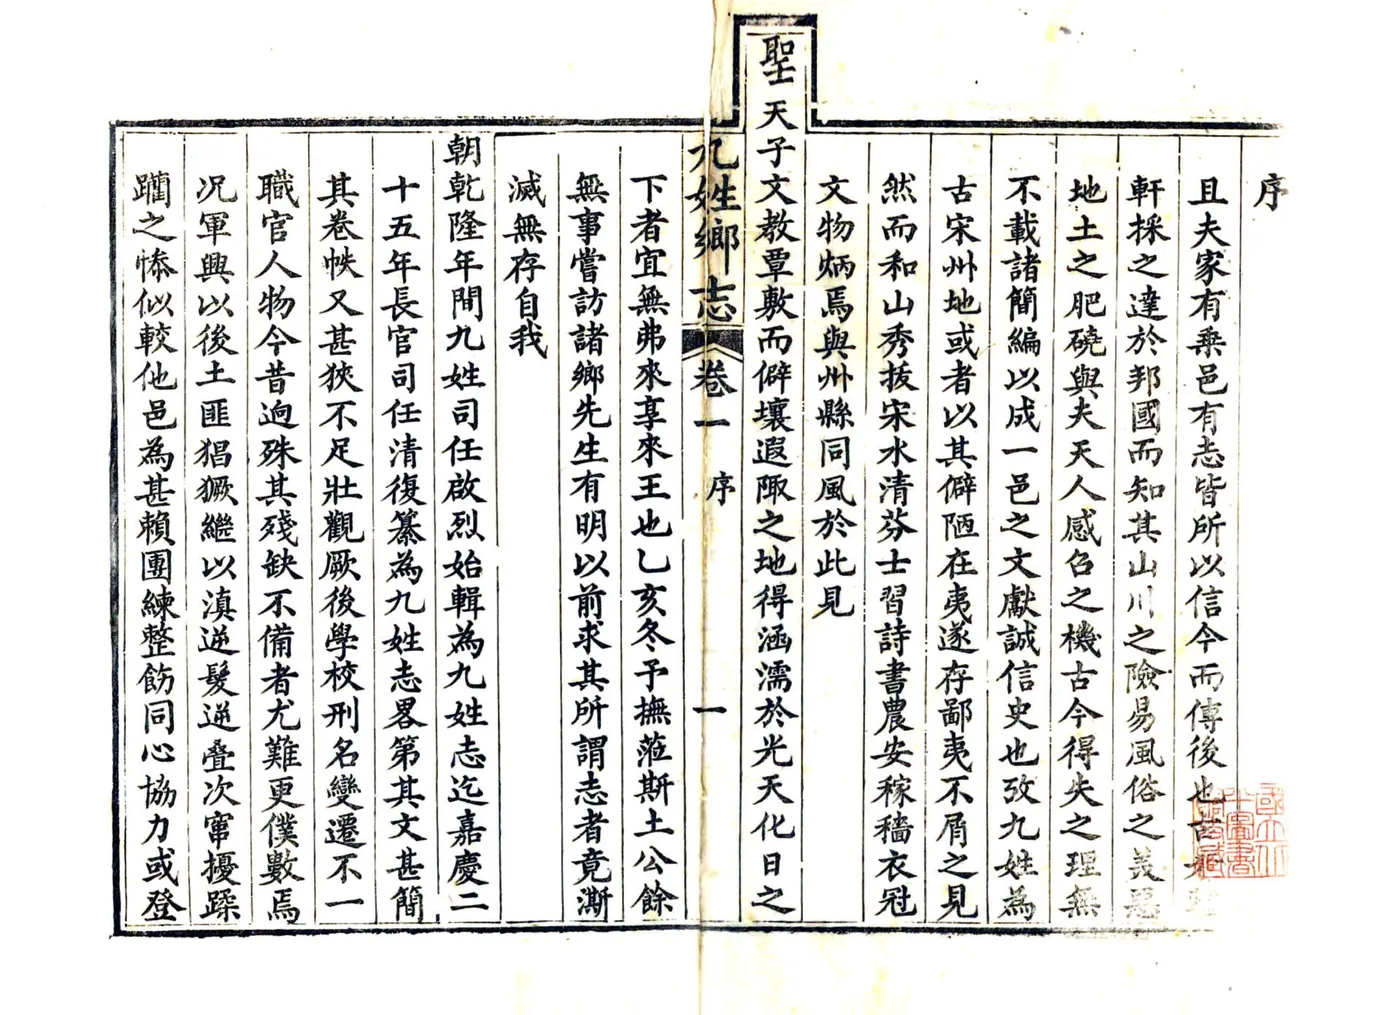 序
且夫家有乘邑有志皆所以信今而傳後也古
軒採之達於邦國而知其山川之險易風俗之美惡
地土之肥磽與夫天人感召之機古今得失之理無
不載諸簡編以成一邑之文獻誠信史也攷九姓為
古宋州地或者以其僻陋在夷遂存鄙夷不屑之見
然而和山秀拔宋水清芬士習詩書農安稼穡衣冠
文物炳焉與州縣同風於此見
聖天子文教覃敷而僻壤遐陬之地得涵濡於光天化日之
九姓鄉志 卷一 序 一
下者宜無弗來享來王也乙亥冬予撫蒞斯土公餘
無事嘗訪諸鄉先生有明以前求其所謂志者竟澌
滅無存自我
朝乾隆年間九姓司任啟烈始輯為九姓志迄嘉慶二
十五年長官司任清復纂為九姓志畧第其文甚簡
其卷帙又甚狹不足壯觀厥後學校刑名變遷不一
職官人物今昔逈殊其殘缺不備者尤難更僕數焉
况軍興以後土匪猖獗繼以滇逆髮逆叠次竄擾蹂
躪之慘似較他邑為甚賴團練整飭同心協力或登